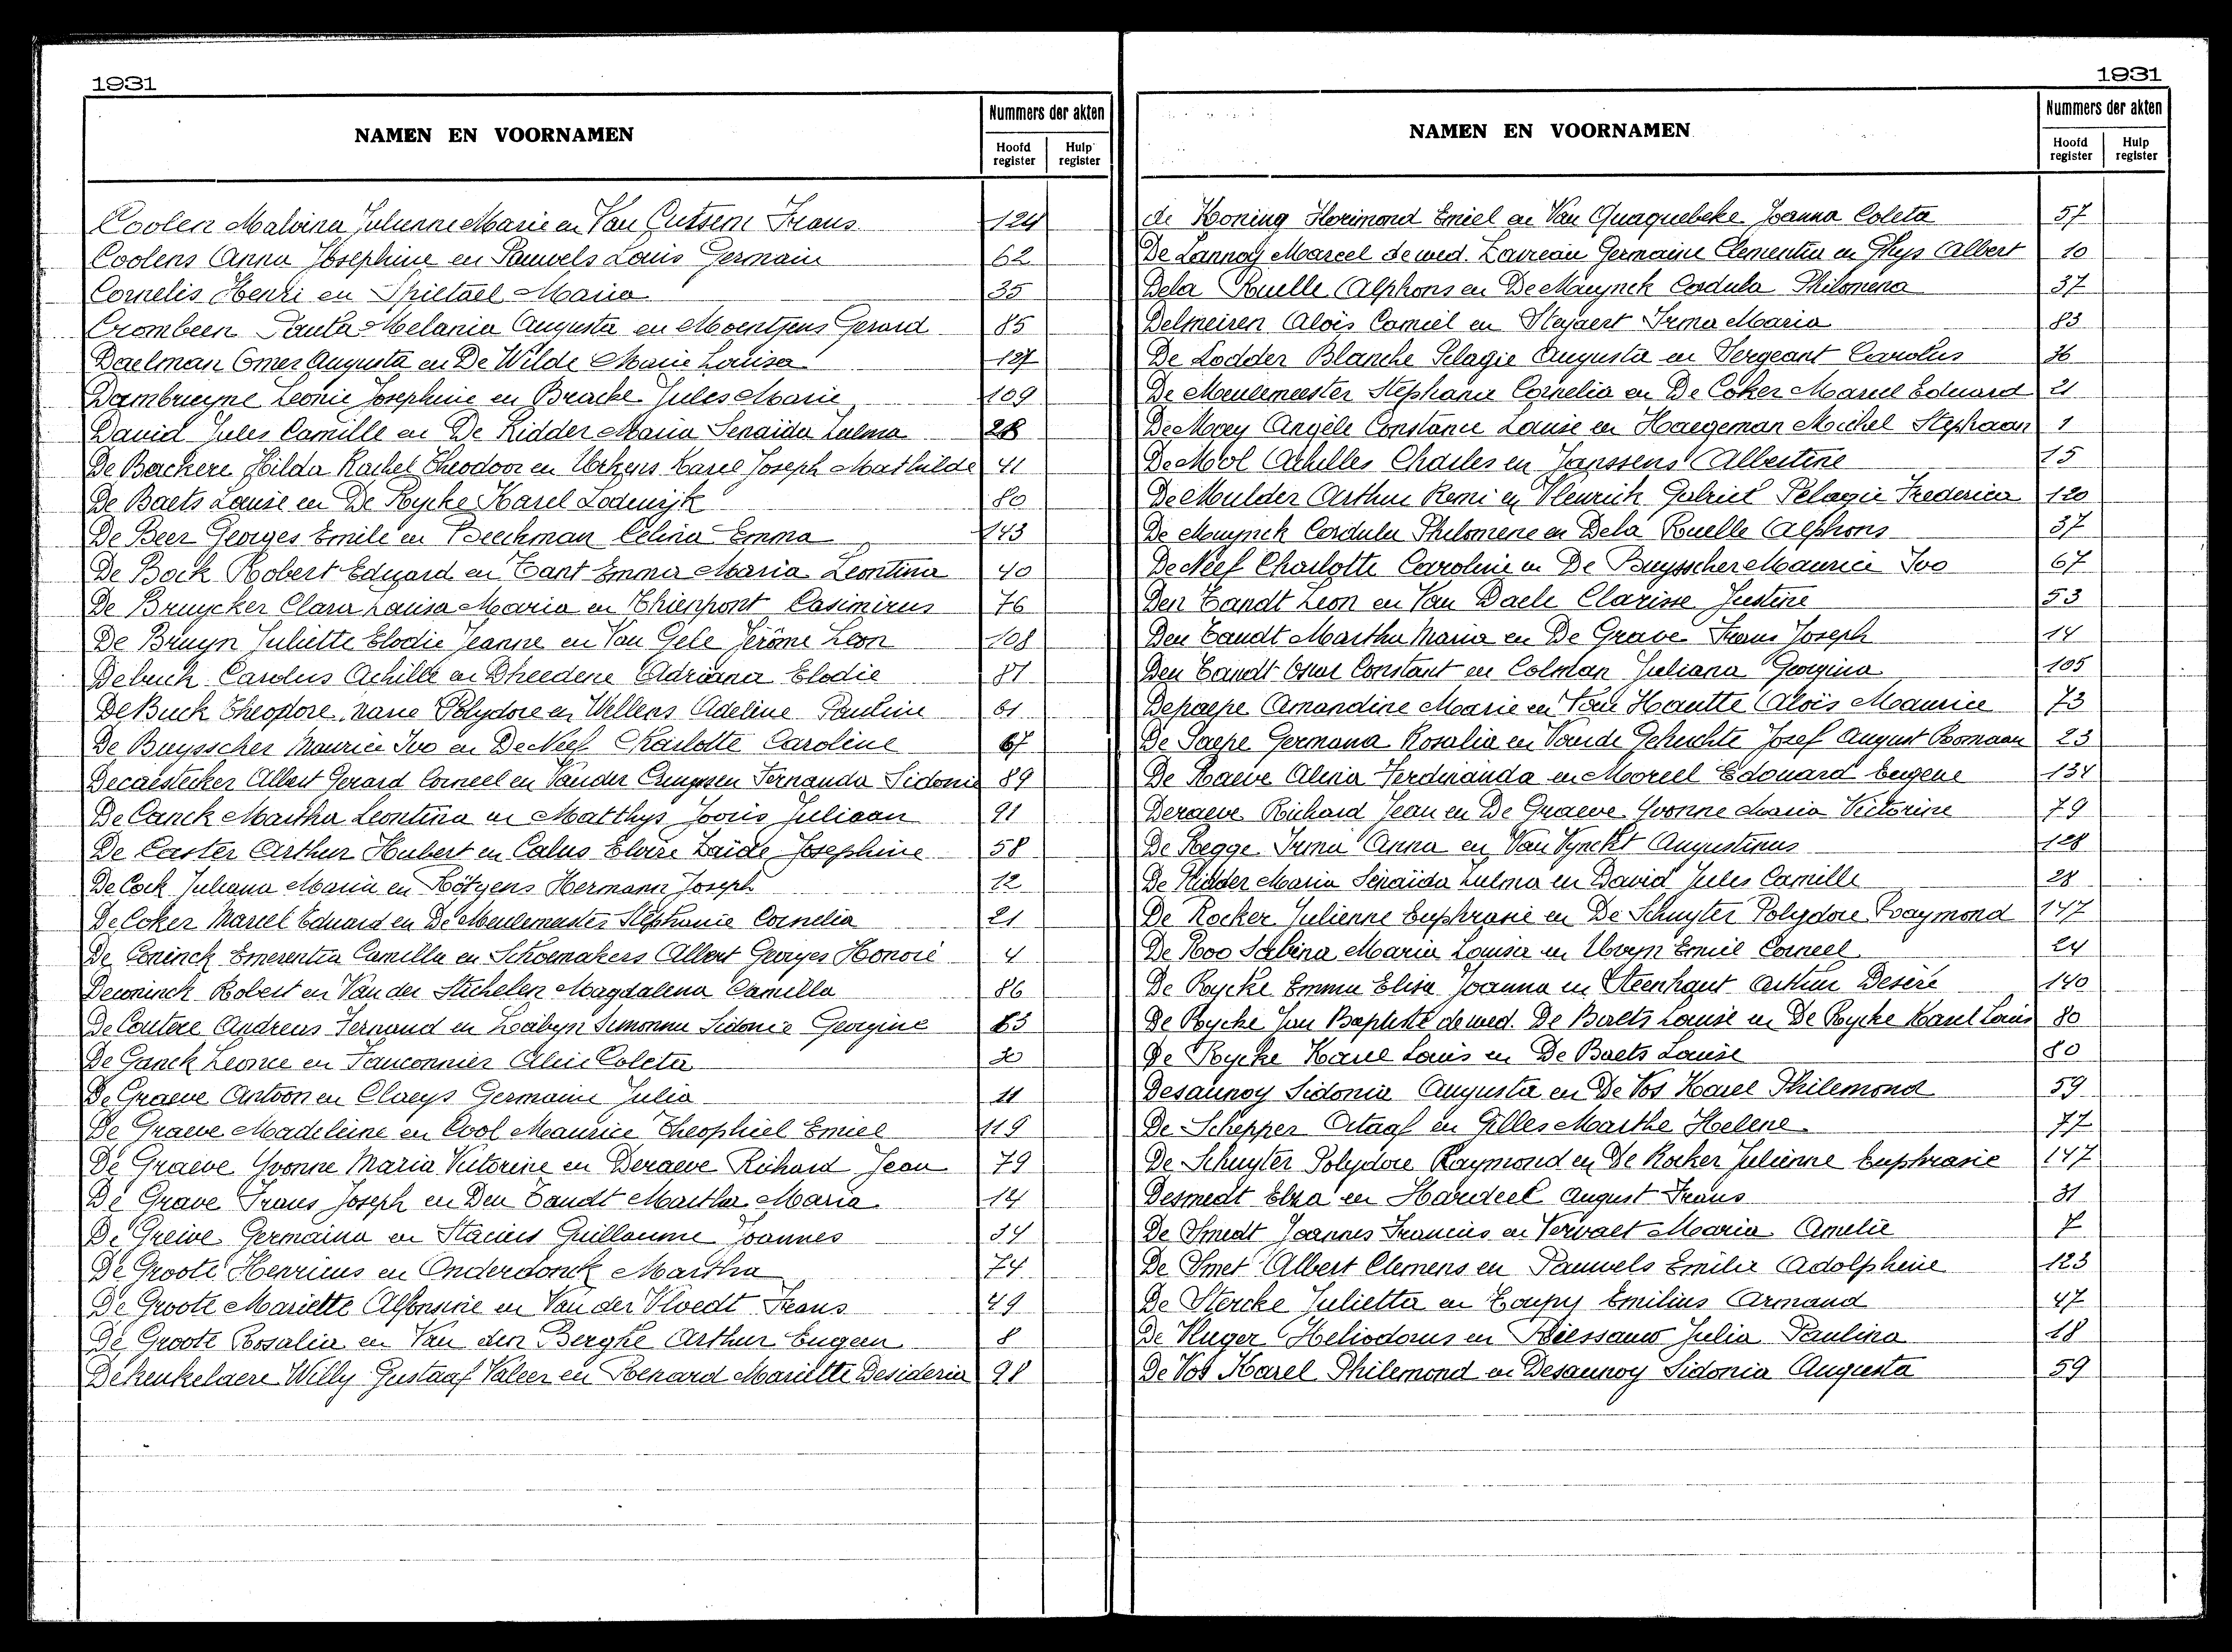 1931
NAMEN EN VOORNAMEN
Nummers der akten
Hoofd register
Hulp register
Coolen Malvina Julienne Marie en Van Cutsem Frans 124
Coolens Anna Josephine en Pauwels Louis Germain 62
Cornelis Henri en Spiltael Maria 35
Crombeen Paula Melania Augusta en Moentjens Gerard 85
Daelman Omer Augusta en De Wilde Marie Louisa 127
Dambruyne Leonie Josephine en Bracke Jules Marie 109
David Jules Camille en De Ridder Maria Senaida Zulma 28
De Backere Hilda Rachel Theodoor en Karel Joseph Mathilde 41
De Baets Louise en De Rycke Karel Lodewijk 80
De Beer Georges Emile en Beeckman Celina Emma 143
De Bock Robert Eduard en Tant Emma Maria Leontina 40
De Bruycker Clara Louisa Maria en Thienpont Casimirus 76
De Bruyn Juliette Elodie Jeanne en Van Gele Jérôme Leon 108
Debuck Carolus Achille en Dheedene Adriana Elodie 81
De Buck Theophore Marie Polydore en Willens Adeline Pauline 61
De Buysscher Maurice Ivo en De Neef Charlotte Caroline 67
Decaestecker Albert Gerard Corneel en Vander Cruyssen Fernanda Sidonie 89
De Canck Martha Leontina en Matthys Joris Juliaan 91
De Caster Arthur Hubert en Calus Elvire Zaïde Josephine 58
De Cock Juliana Maria en Rötgens Hermann Joseph 12
De Coker Marcel Eduard en De Meulemeester Stephanie Cornelia 21
De Coninck Emerentia Camilla en Schoemakers Albert Georges Honoré 4
Deconinck Robert en Van der Stichelen Magdalena Camilla 86
De Coutere Andreas Fernand en Simonna Sidonie Georgine 63
De Ganck Leonce en Fauconnier Alice Coleta 30
De Graeve Antoon en Claeys Germaine Julia 11
De Graeve Madeleine en Cool Maurice Theophiel Emiel 119
De Graeve Yvonne Maria Victorine en Deraeve Richard Jean 79
De Grave Frans Joseph en Den Tandt Martha Maria 14
De Greive Germaina en Stacius Guillaume Joannes 34
De Groote Henricus en Onderdonck Martha 74
De Groote Mariette Alfonsine en Van der Vloedt Frans 49
De Groote Rosalia en Van den Berghe Arthur Eugeen 8
Dekeukelaere Willy Gustaaf Valeer en Renard Mariette Desideria 98
1931
NAMEN EN VOORNAMEN
Nummers der akten
Hoofd register
Hulp register
de Koning Florimond Emiel en Van Quaquebeke Joanna Coleta 57
De Lannoy Marcel de wed. Lavreau Germaine Clementia en Ghys Albert 10
Dela Ruelle Alphons en De Muynck Cordula Philomena 37
Delmeiren Aloïs Camiel en Steyaert Irma Maria 83
De Lodder Blanche Pelagie Augusta en Sergeant Carolus 36
De Meulemeester Stephanie Cornelia en De Coker Marcel Eduard 21
De Mey Angèle Constance Louise en Haegeman Michel Stephaan 1
De Mol Achilles Charles en Janssens Albertine 15
De Mulder Arthur Remi en Vleurick Gabriel Pelagie Frederica 120
De Muynck Cordula Philomene en Dela Ruelle Alphons 37
De Neef Charlotte Caroline en De Buysscher Maurice Ivo 67
Den Tandt Leon en Van Daele Clarisse Justine 53
Den Tandt Martha Maria en De Grave Frans Joseph 14
Den Tandt Oscar Constant en Colman Juliana Georgina 105
Depaepe Amandine Marie en Van Hautte Aloïs Maurice 73
De Paepe Germana Rosalia en Vande Gehuchte Josef August Romaan 23
De Raeve Alina Ferdinanda en Moreel Edouard Eugene 134
Deraeve Richard Jean en De Graeve Yvonne Maria Victorine 79
De Regge Irma Anna en Van Vynckt Augustinus 128
De Ridder Maria Senaïda Zulma en David Jules Camille 28
De Rocker Julienne Euphrasie en De Schuyter Polydore Raymond 147
De Roo Sabina Maria Louisa en Uvyn Emiel Corneel 24
De Rycke Emma Elisa Joanna en Steenhaut Arthur Desiré 140
De Rycke Jan Baptiste de wed. De Baets Louise en De Rycke Karel Louis 80
De Rycke Karel Louis en De Baets Louise 80
Desaunoy Sidonia Augusta en De Vos Karel Philemond 59
De Schepper Octaaf en Gilles Marthe Helene 77
De Schuyter Polydore Raymond en De Rocker Julienne Euphrasie 147
Desmedt Elza en Hardeel August Frans 31
De Smedt Joannes Francies en Vervaet Maria Amelie 7
De Smet Albert Clemens en Pauwels Emilie Adolphine 123
De Stercke Julietta en Toupy Emilius Armand 47
De Vlieger Heliodorus en Biessauw Julia Paulina 18
De Vos Karel Philemond en Desaunoy Sidonia Augusta 59